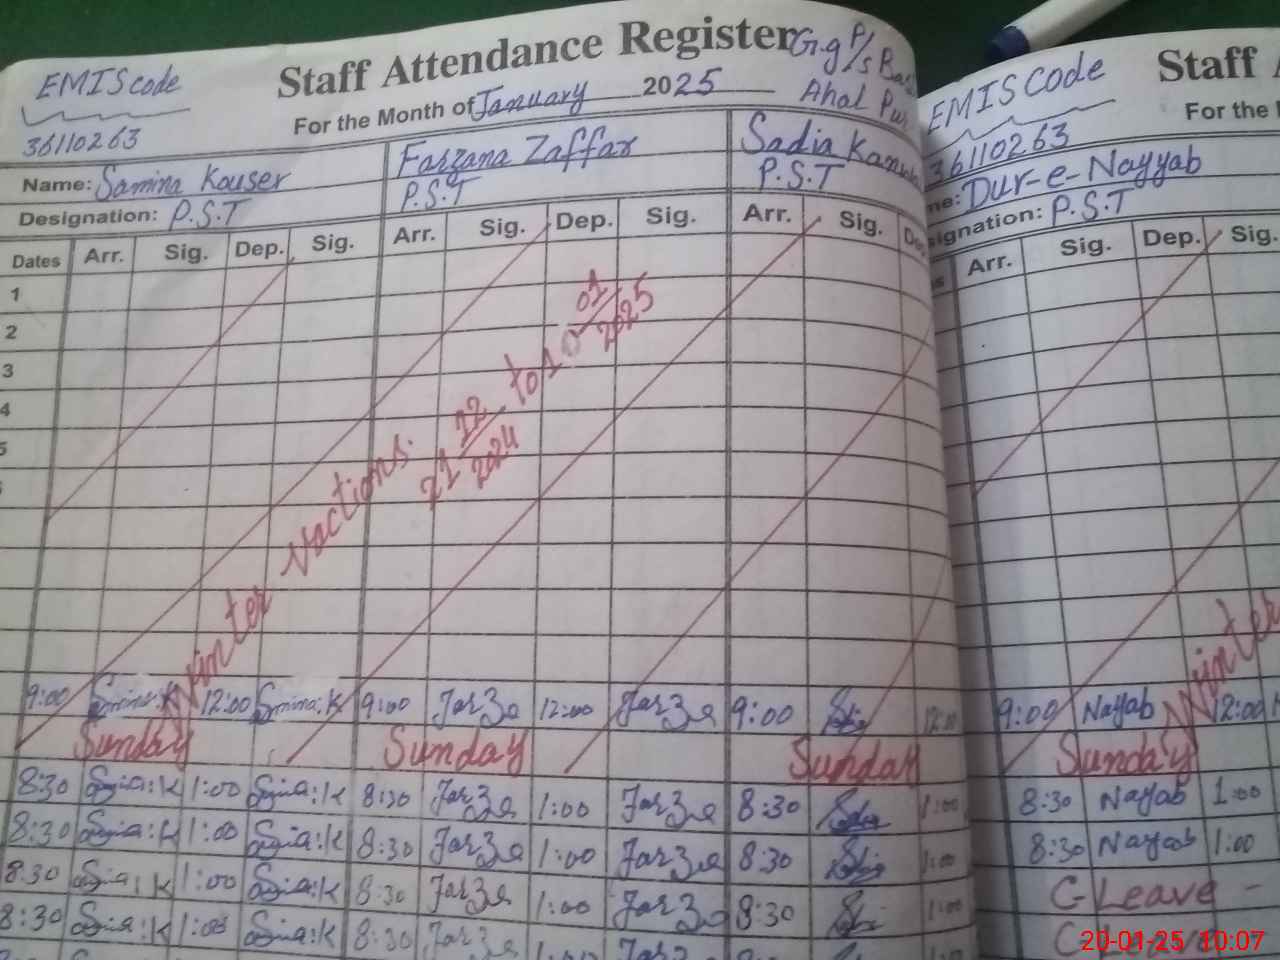 EMIS code
36110263
Staff Attendance Register
G.g P/s
Ahal Pur
For the Month of January 2025
Name: Samina Kouser
Farzana Zaffar
Sadia
Designation: P.S.T
P.S.T
P.S.T
Dates Arr. Sig. Dep. Sig. Arr. Sig. Dep. Sig. Arr. Sig.
1
2
3
4
5
Winter vactions. 21 12/2024 to 10 01/2025
9:00 12:00 Smina:K 9:00 Far3a 12:00 Far3a 9:00 12:00
Sunday Sunday Sunday
8:30 1:00 8:30 Far3a 1:00 Far3a 8:30 1:00
8:30 1:00 8:30 Far3a 1:00 Far3a 8:30 1:00
8:30 1:00 8:30 Far3a 1:00 Far3a 8:30 1:00
8:30 1:00 8:30 Far3a 1:00 Far3a 8:30 1:00
EMIS Code
36110263
Staff
For the
Dur-e-Nayyab
signation: P.S.T
Arr. Sig. Dep. Sig.
Winter
9:00 Nayab 12:00
Sunday
8:30 Nayab 1:00
8:30 Nayab 1:00
C-Leave -
C-Leave
20-01-25 10:07